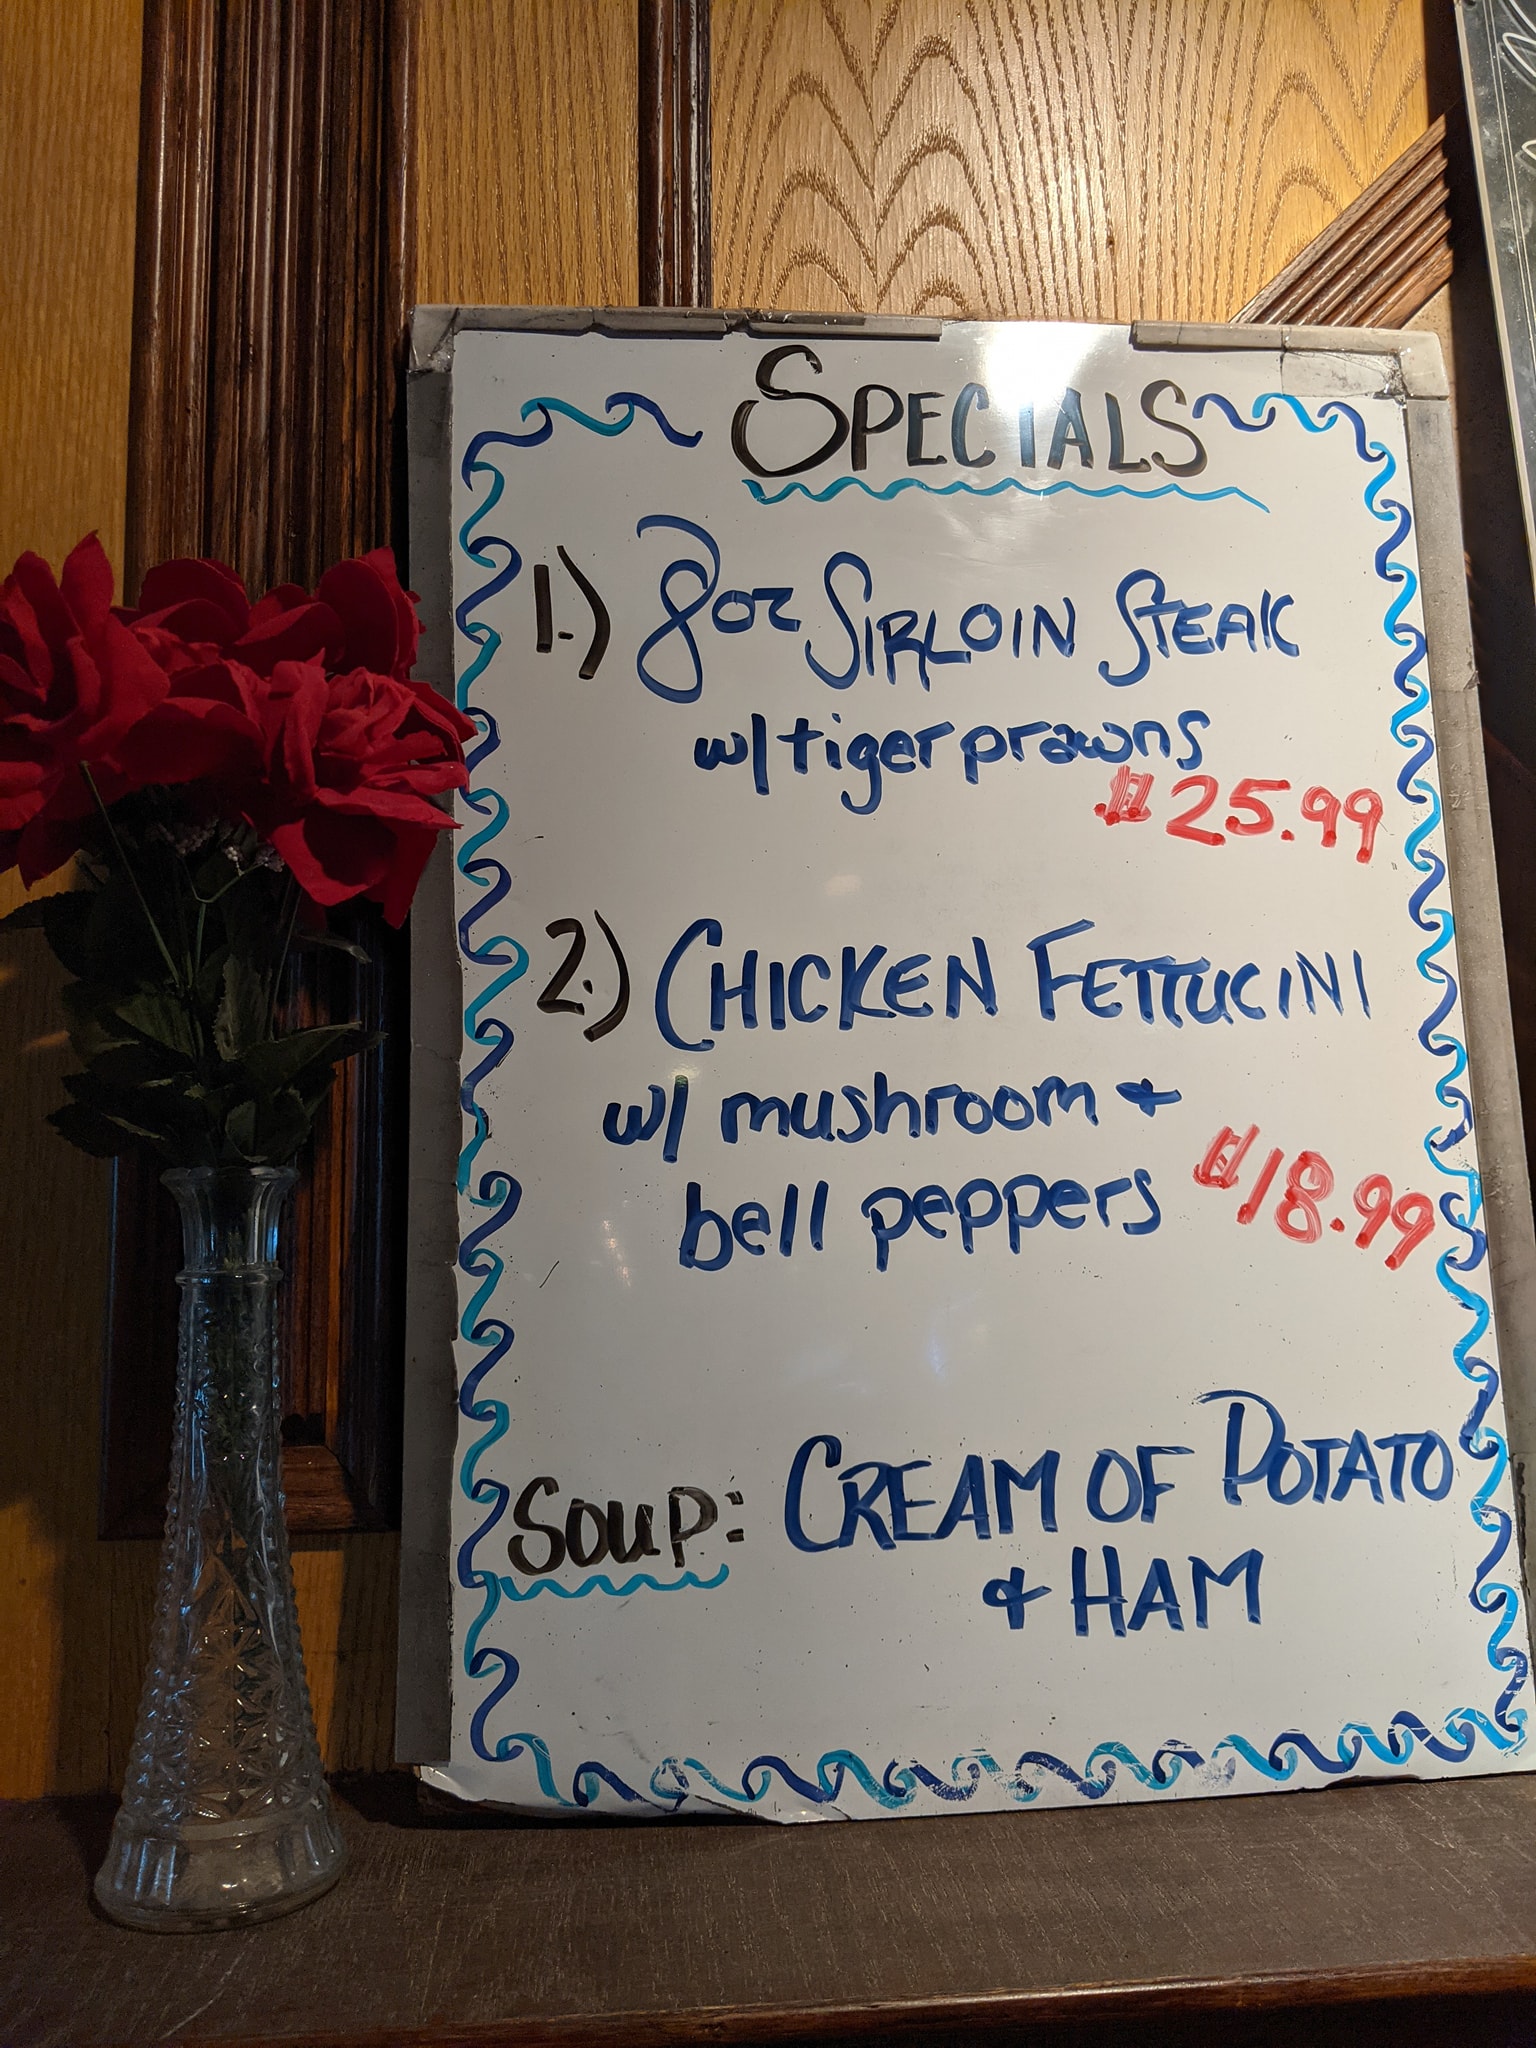 SPECIALS
1.) 8oz SIRLOIN STEAK
w/ tiger prawns
$25.99
2.) CHICKEN FETTUCINI
w/ mushroom &
bell peppers $18.99
SOUP: CREAM OF POTATO
& HAM